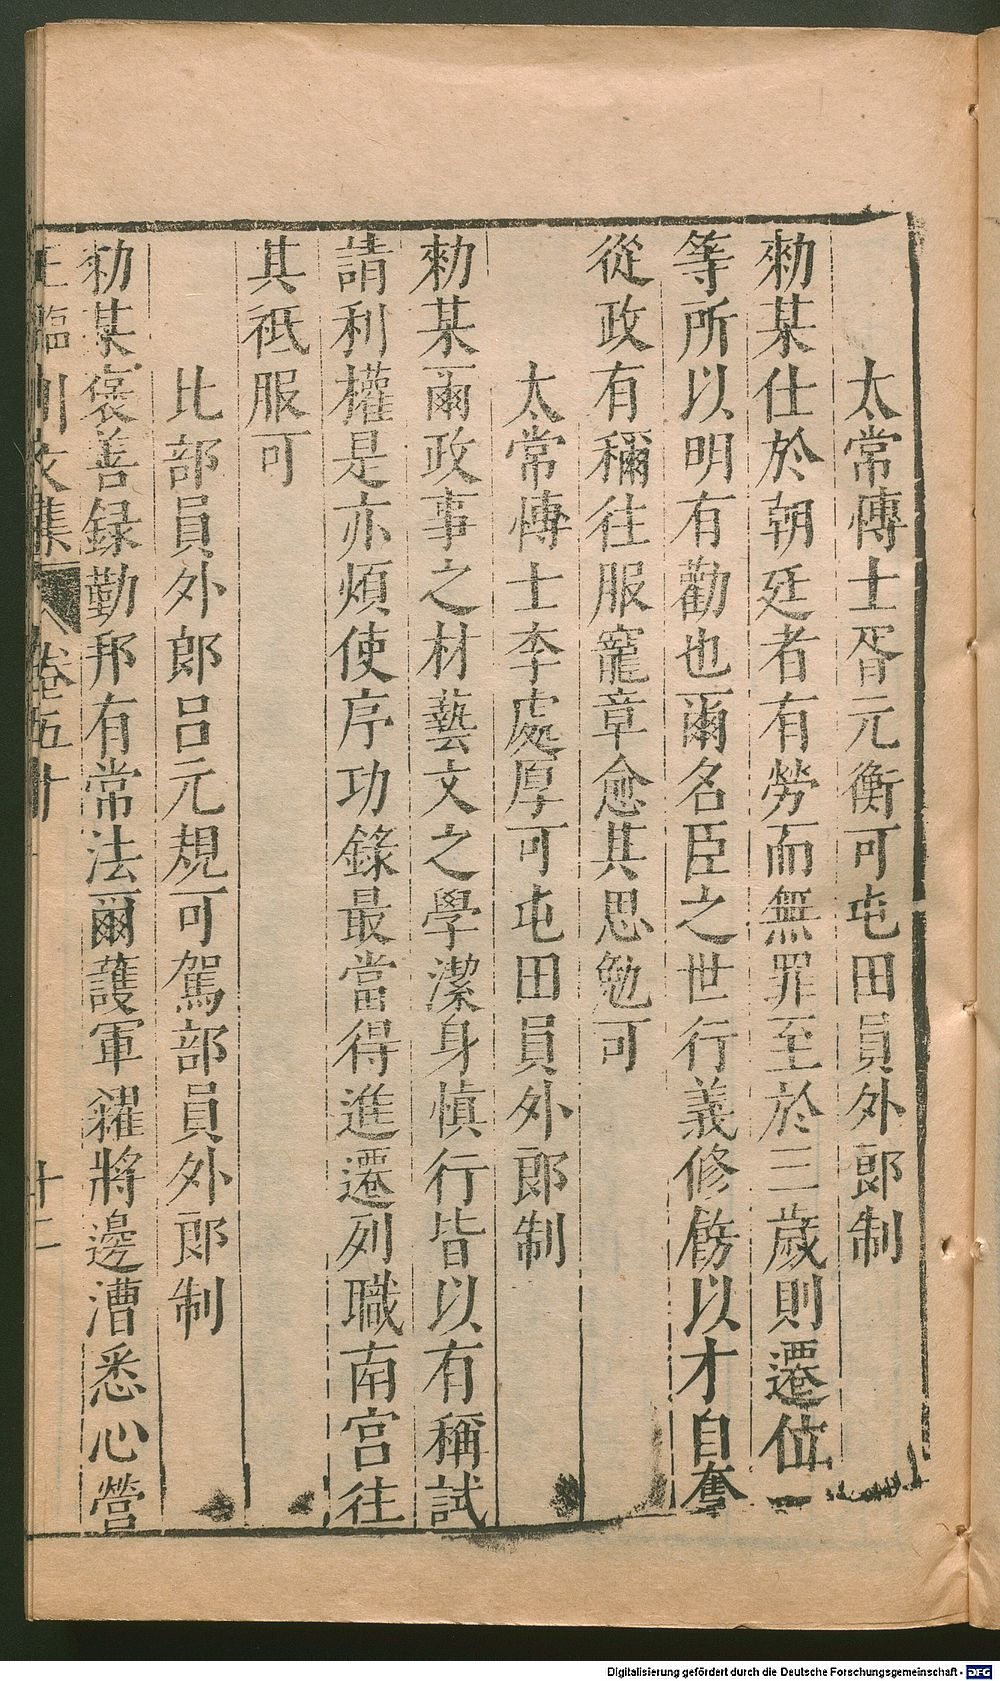 太常博士胥元衡可屯田員外郎制
勑某仕於朝廷者有勞而無罪至於三歲則遷位一
等所以明有勸也爾名臣之世行義修飭以才自奮
從政有稱往服寵章愈其思勉可
太常博士李處厚可屯田員外郎制
勑某爾政事之材藝文之學潔身慎行皆以有稱試
請利權是亦煩使序功錄最當得進遷列職南宮往
其祗服可
比部員外郎呂元規可駕部員外郎制
勑某褒善録勤邦有常法爾護軍糴將邊漕悉心營
王臨川文集 卷五十 十二
Digitalisierung gefördert durch die Deutsche Forschungsgemeinschaft - DFG